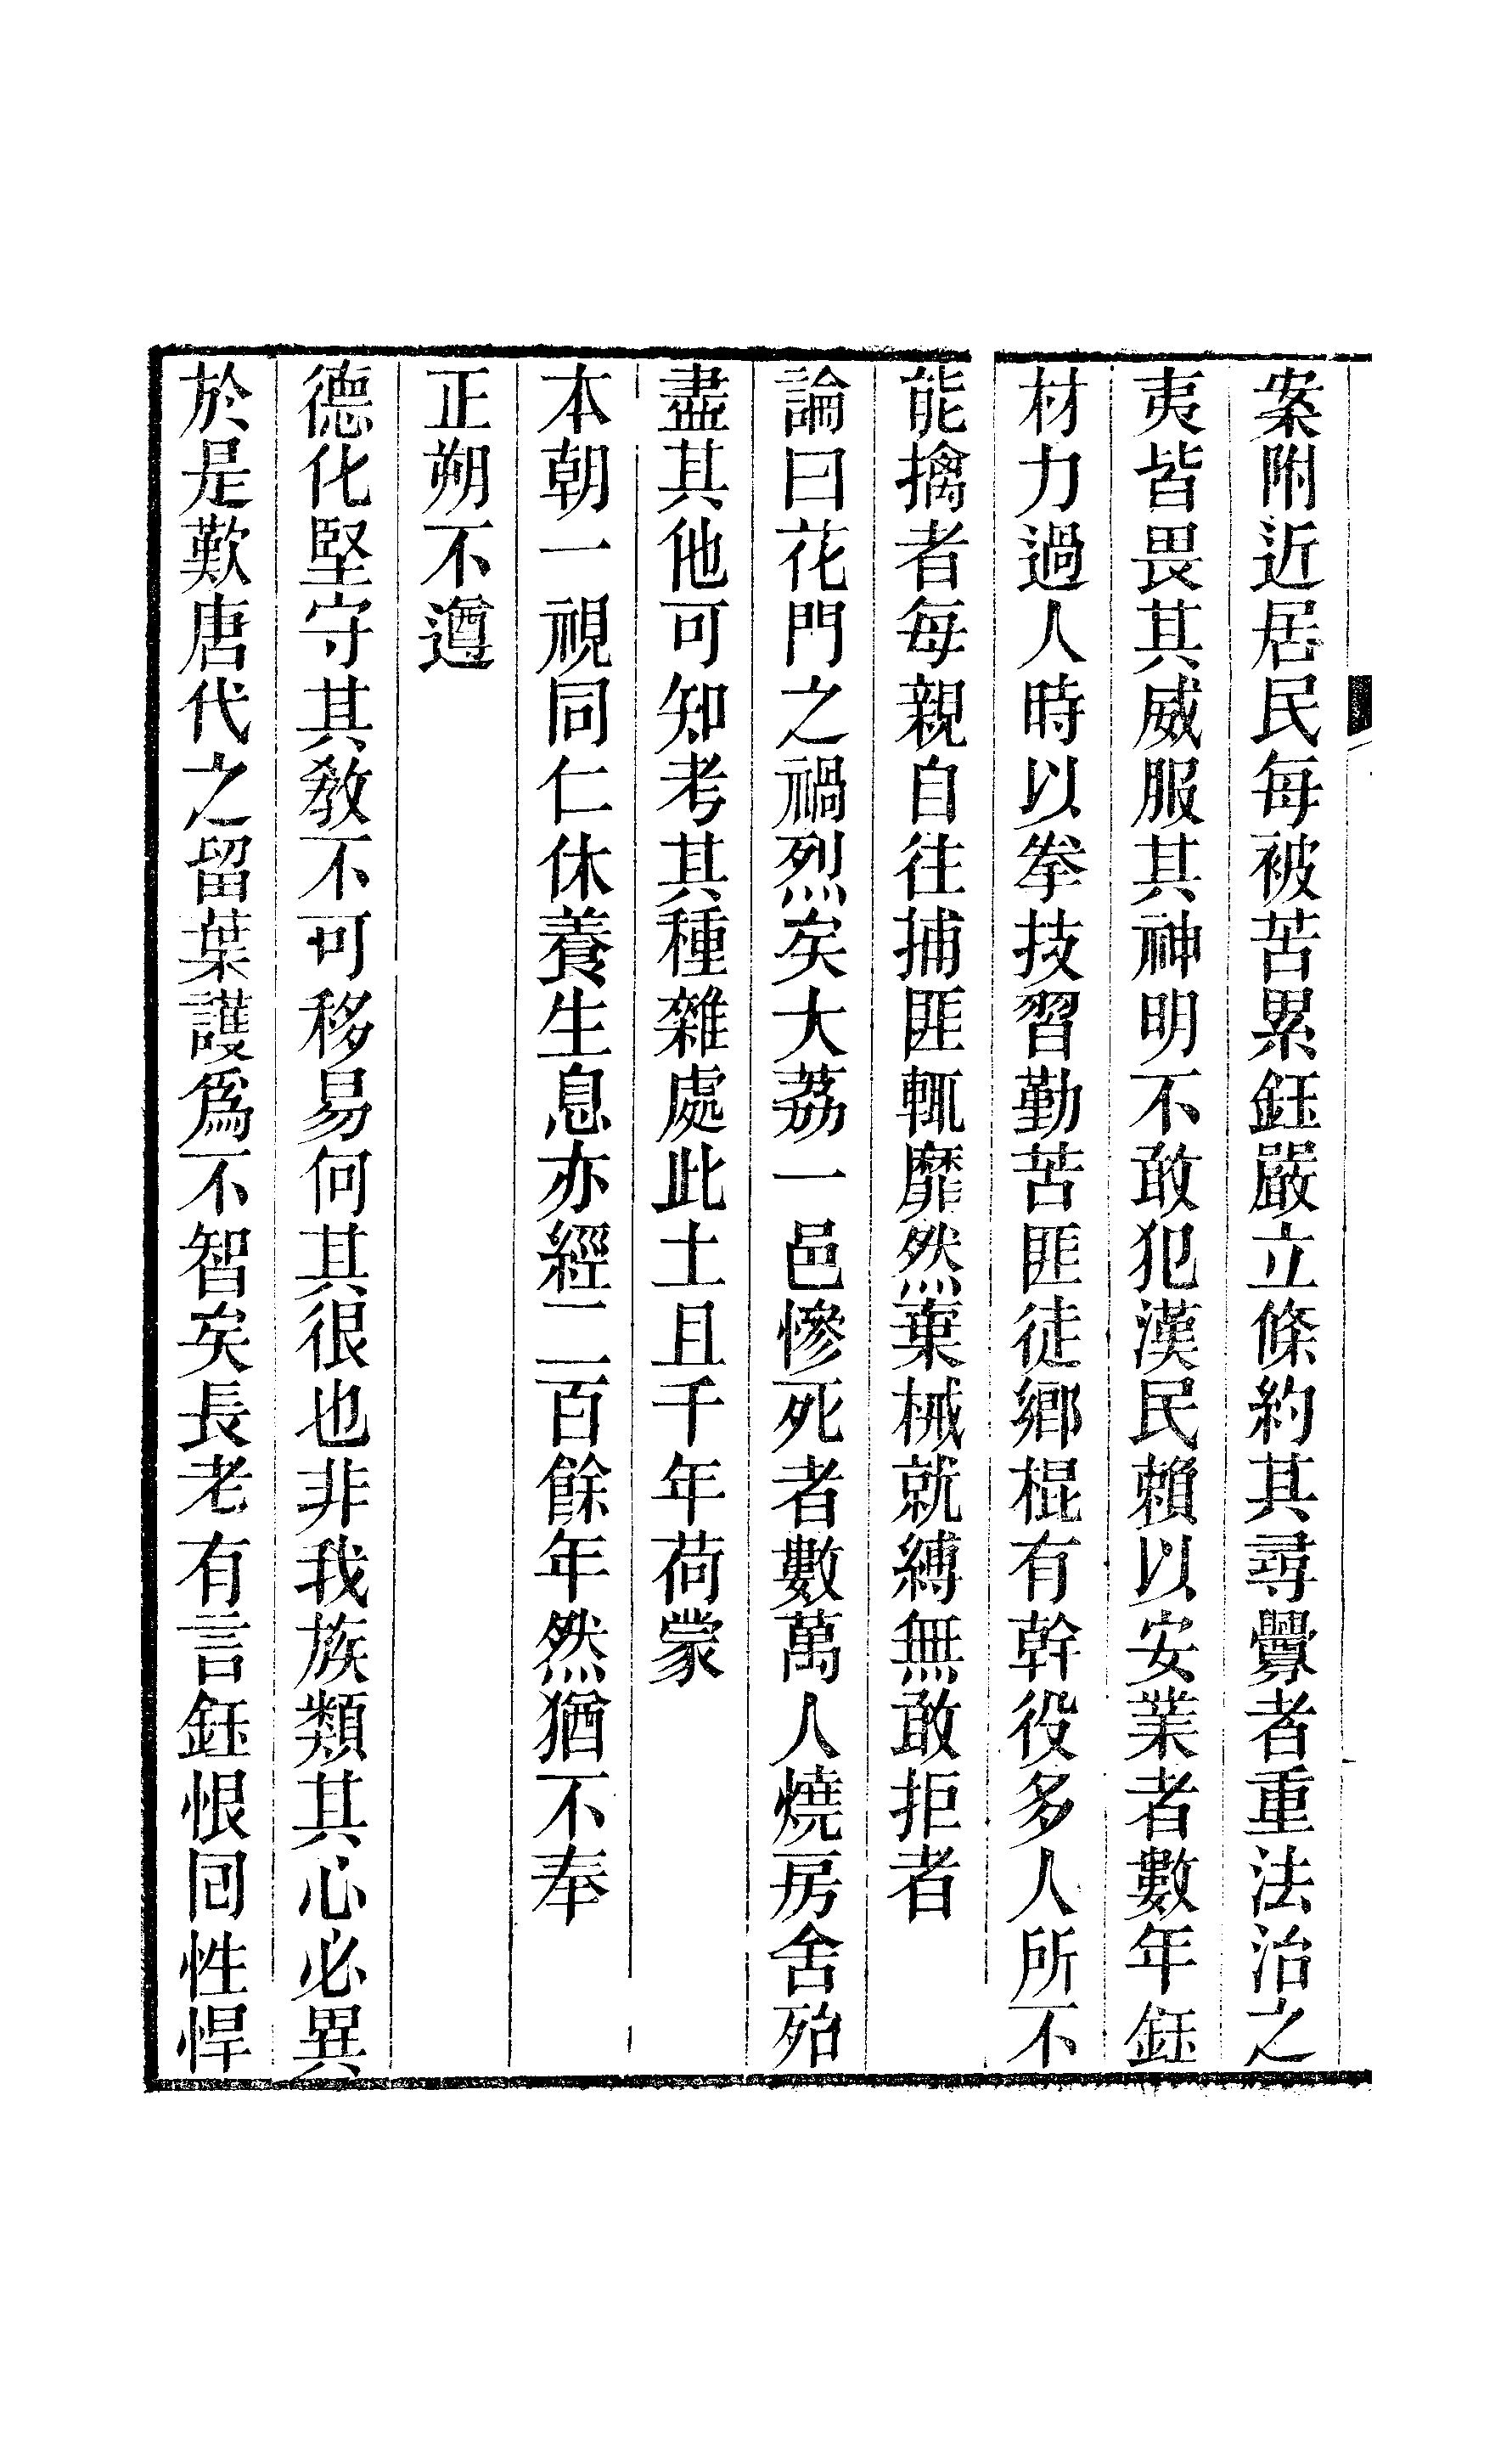 案附近居民每被苦累鈺嚴立條約其尋釁者重法治之
夷皆畏其威服其神明不敢犯漢民賴以安業者數年鈺
材力過人時以拳技習勤苦匪徒鄉棍有幹役多人所不
能擒者每親自往捕匪輒靡然棄械就縛無敢拒者
論曰花門之禍烈矣大荔一邑慘死者數萬人燒房舍殆
盡其他可知考其種雜處此土且千年荷蒙
本朝一視同仁休養生息亦經二百餘年然猶不奉
正朔不遵
德化堅守其敎不可移易何其很也非我族類其心必異
於是歎唐代之留葉護爲不智矣長老有言鈺恨回性悍